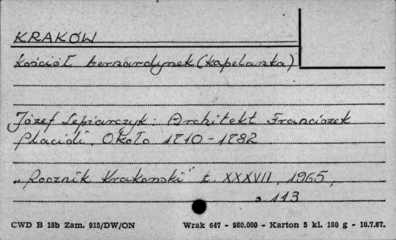 KRAKÓW
Kościół bernardynek (kapelanka)
Józef Lepiarczyk: Architekt Franciszek
Placidi. Około 1710-1782
„Rocznik Krakowski" t. XXXVII, 1965,
s 113
CWD B 15b Zam. 915/DW/ON Wrak 647 - 980.000 - Karton 5 kl. 180 g - 10.7.67.